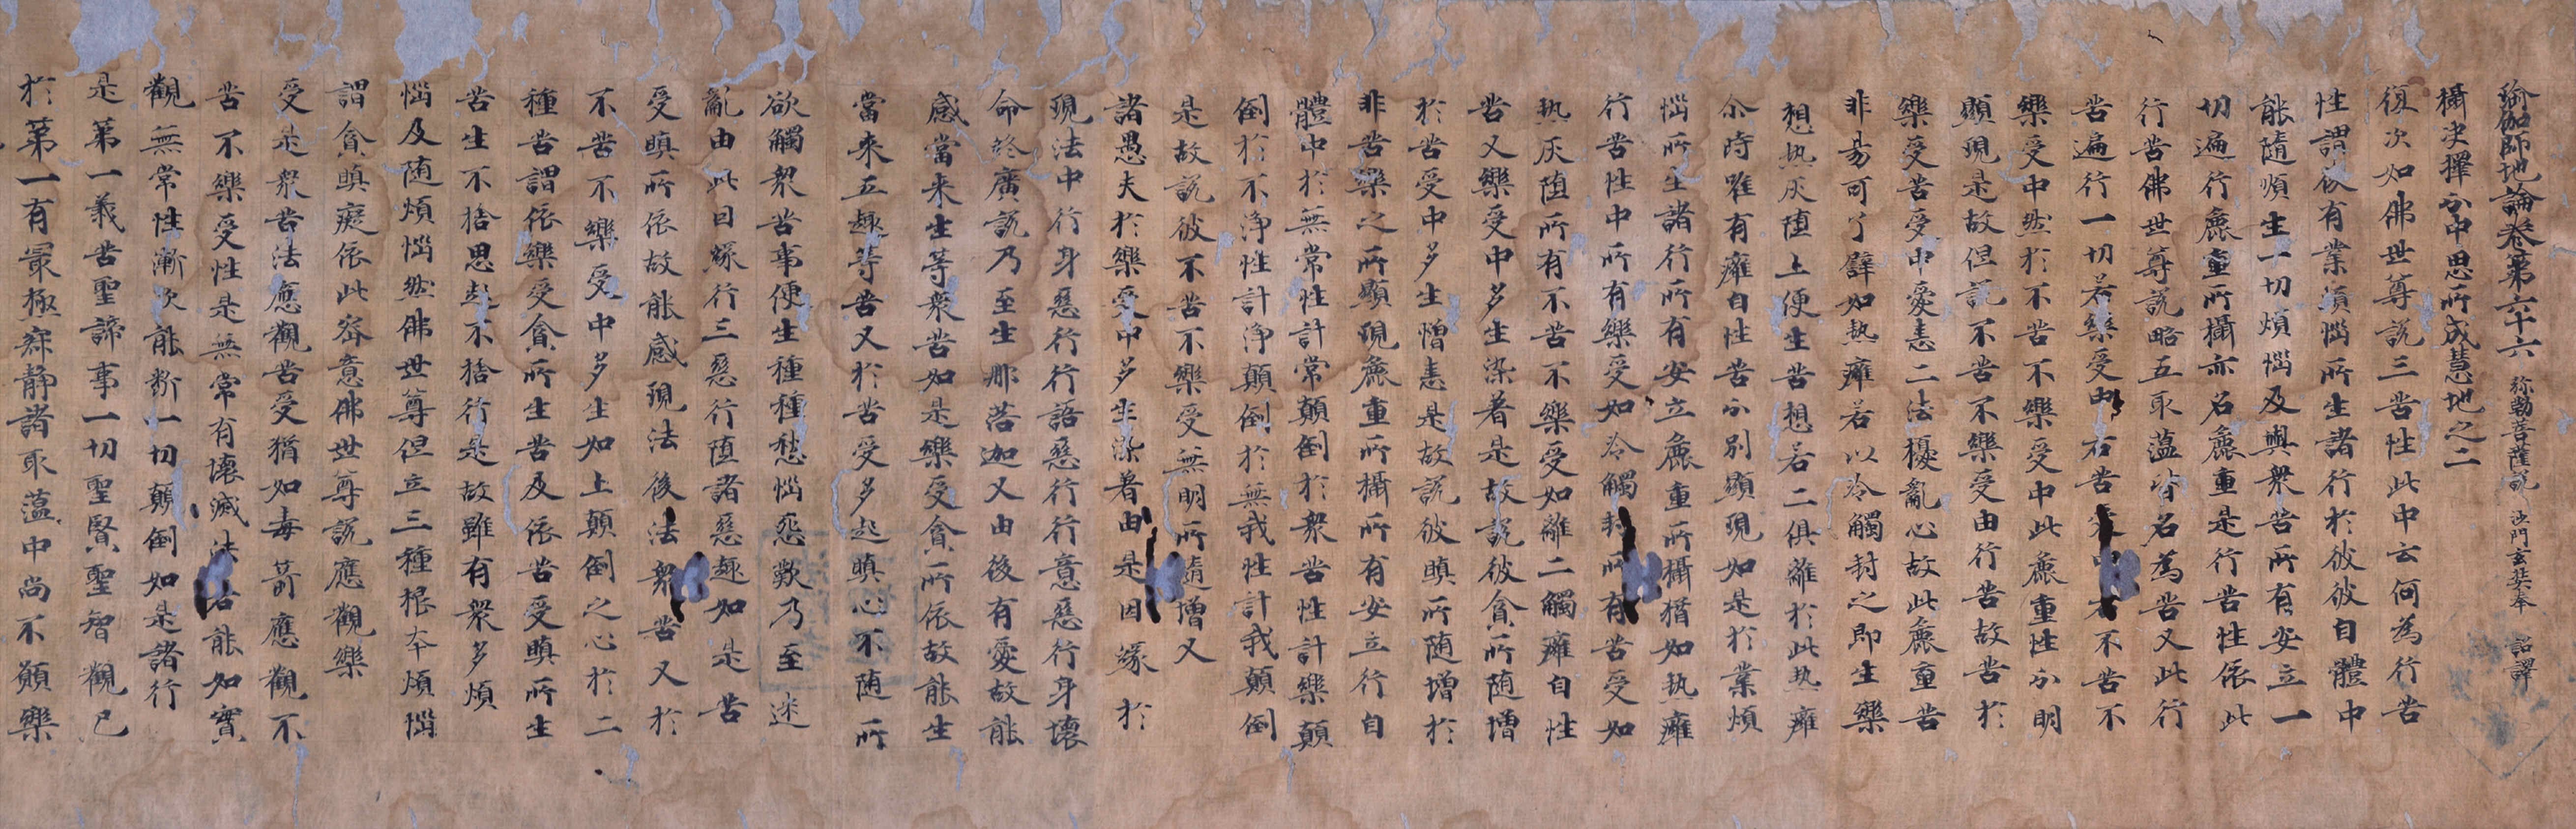 瑜伽師地論卷第六十六 弥勒菩薩說 沙門玄奘奉 詔譯
攝決擇分中思所成慧地之二
復次如佛世尊說三苦性此中云何為行苦
性謂後有業煩惱所生諸行於彼彼自體中
能隨順生一切煩惱及與衆苦所有安立一
切遍行麁重所攝亦名麁重是行苦性依此
行苦佛世尊說略五取薀皆名為苦又此行
苦遍行一切若樂受中若苦受中若不苦不
樂受中然於不苦不樂受中此麁重性分明
顯現是故但說不苦不樂受由行苦故苦於
樂受苦受中愛恚二法擾亂心故此麁重苦
非易可了譬如熱癰若以冷觸封之即生樂
想熱灰墮上便生苦想若二俱離於此熱癰
尒時唯有癰自性苦分別顯現如是於業煩
惱所生諸行所有安立麁重所攝猶如熱癰
行苦性中所有樂受如冷觸封所有苦受如
熱灰墮所有不苦不樂受如離二觸癰自性
苦又樂受中多生染着是故說彼貪所随增
於苦受中多生憎恚是故說彼瞋所随增於
非苦樂之所顯現麁重所攝所有安立行自
體中於無常性計常顛倒於衆苦性計樂顛
倒於不淨性計淨顛倒於無我性計我顛倒
是故說彼不苦不樂受無明所隨增又
諸愚夫於樂受中多生染著由是因緣於
現法中行身惡行行語惡行行意惡行身壞
命終廣說乃至生那落迦又由後有愛故能
感當来生等衆苦如是樂受貪所依故能生
當来五趣等苦又於苦受多起瞋心不随所
欲觸衆苦事便生種種愁惱怨歎乃至迷
亂由此因緣行三惡行墮諸惡趣如是苦
受瞋所依故能感現法後法衆苦又於
不苦不樂受中多生如上顛倒之心於二
種苦謂依樂受貪所生苦及依苦受瞋所生
苦生不捨思起不捨行是故雖有衆多煩
惱及随煩惱然佛世尊但立三種根本煩惱
謂貪瞋癡依此密意佛世尊說應觀樂
受是衆苦法應觀苦受猶如毒箭應觀不
苦不樂受性是無常有壞滅法若能如實
觀無常性漸次能斷一切顛倒如是諸行
是第一義苦聖諦事一切聖賢聖智觀已
於第一有㝡極寂静諸取薀中尚不願樂